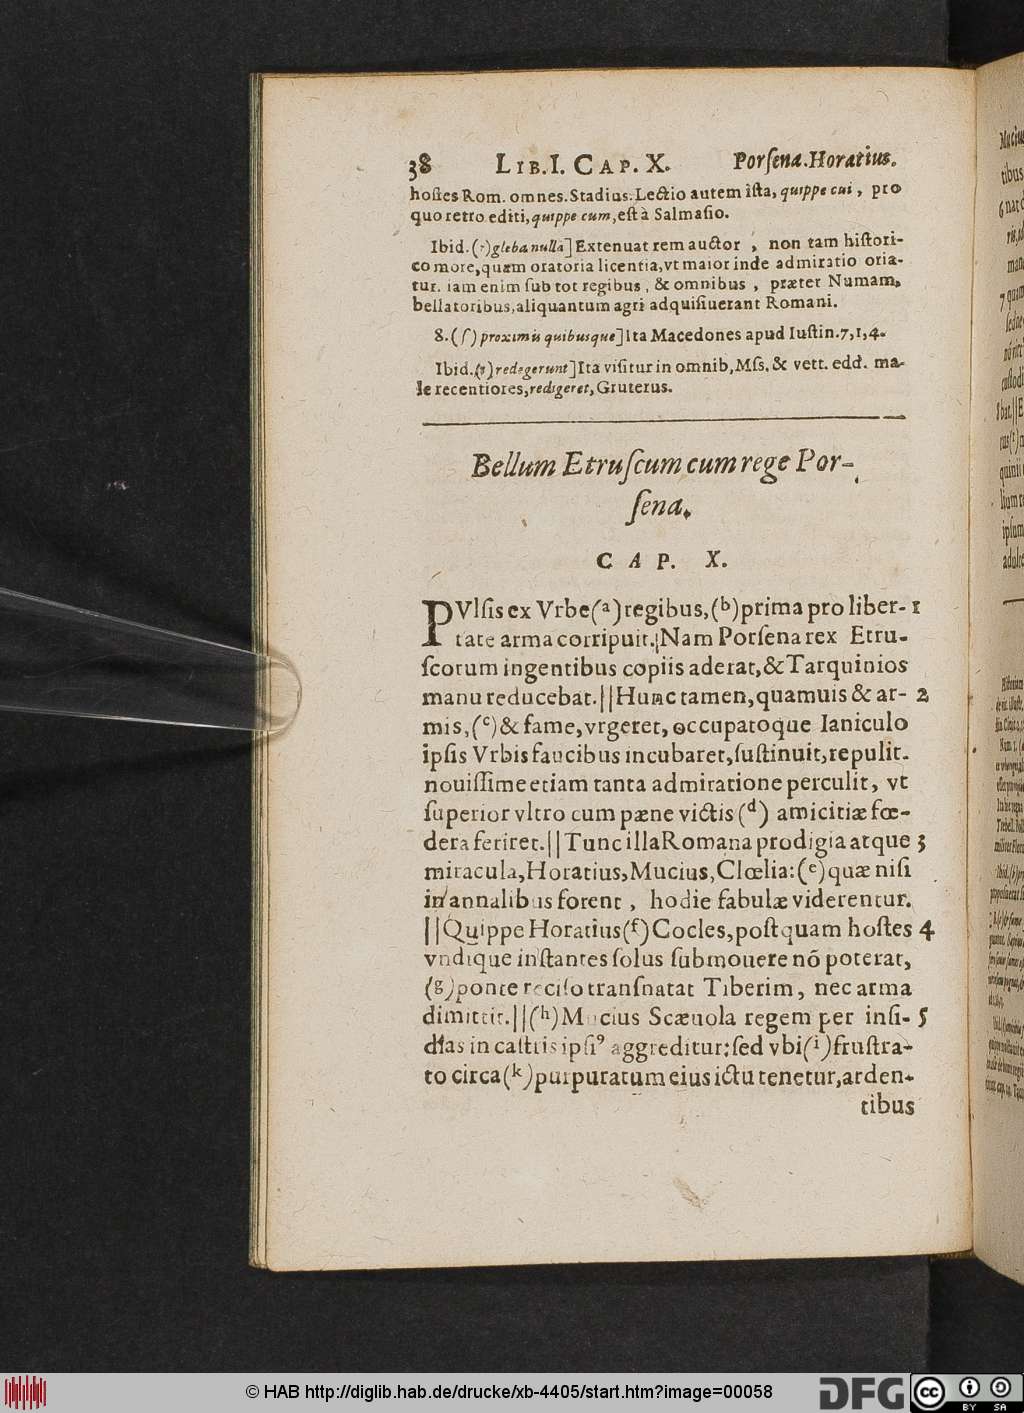 38 LIB. I. CAP. X. Porſena. Horatius.
hoſtes Rom. omnes. Stadius. Lectio autem iſta, quippe cui, pro
quo retro editi, quippe cum, eſt à Salmaſio.
Ibid. (r) gleba nulla] Extenuat rem auctor, non tam hiſtori-
co more, quàm oratoria licentia, vt maior inde admiratio oria-
tur. iam enim ſub tot regibus, & omnibus, præter Numam,
bellatoribus, aliquantum agri adquiſiuerant Romani.
8. (ſ) proximis quibuſque] Ita Macedones apud Iuſtin. 7, 1, 4.
Ibid. (t) redegerunt] Ita viſitur in omnib, Mſs. & vett. edd. ma-
le recentiores, redigeret, Gruterus.
Bellum Etruſcum cum rege Por-
ſena.
CAP. X.
PVlſis ex Vrbe (a) regibus, (b) prima pro liber- 1
tate arma corripuit. Nam Porſena rex Etru-
ſcorum ingentibus copiis aderat, & Tarquinios
manu reducebat. || Hunc tamen, quamuis & ar- 2
mis, (c) & fame, vrgeret, occupatoque Ianiculo
ipſis Vrbis faucibus incubaret, ſuſtinuit, repulit.
nouiſſime etiam tanta admiratione perculit, vt
ſuperior vltro cum pæne victis (d) amicitiæ fœ-
dera feriret. || Tunc illa Romana prodigia atque 3
miracula, Horatius, Mucius, Clœlia: (e) quæ niſi
in annalibus forent, hodie fabulæ viderentur.
|| Quippe Horatius (f) Cocles, poſtquam hoſtes 4
vndique inſtantes ſolus ſubmouere nō poterat,
(g) ponte reciſo tranſnatat Tiberim, nec arma
dimittit. || (h) Mucius Scæuola regem per inſi- 5
dias in caſtris ipſi⁹ aggreditur: ſed vbi (i) fruſtra-
to circa (k) purpuratum eius ictu tenetur, arden-
tibus
© HAB http://diglib.hab.de/drucke/xb-4405/start.htm?image=00058
DFG
cc BY SA